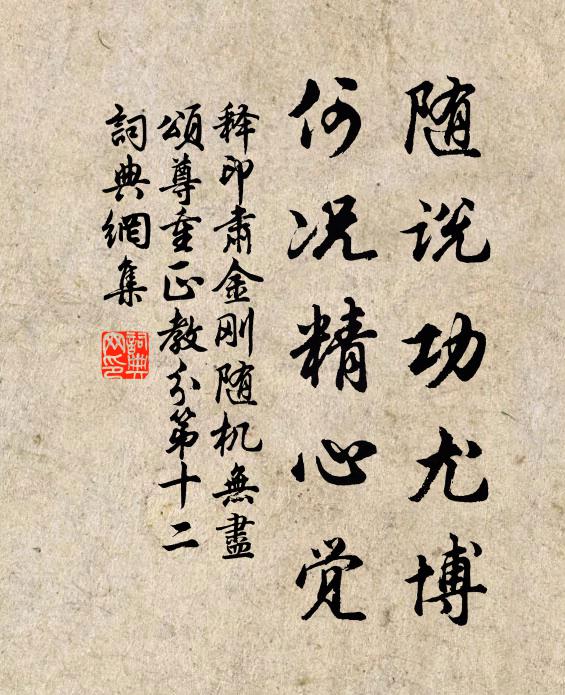 随说功尤博
何况精心觉
释印肃金刚随机無盡
頌尊重正教分第十二
詞典網集
詞典網印